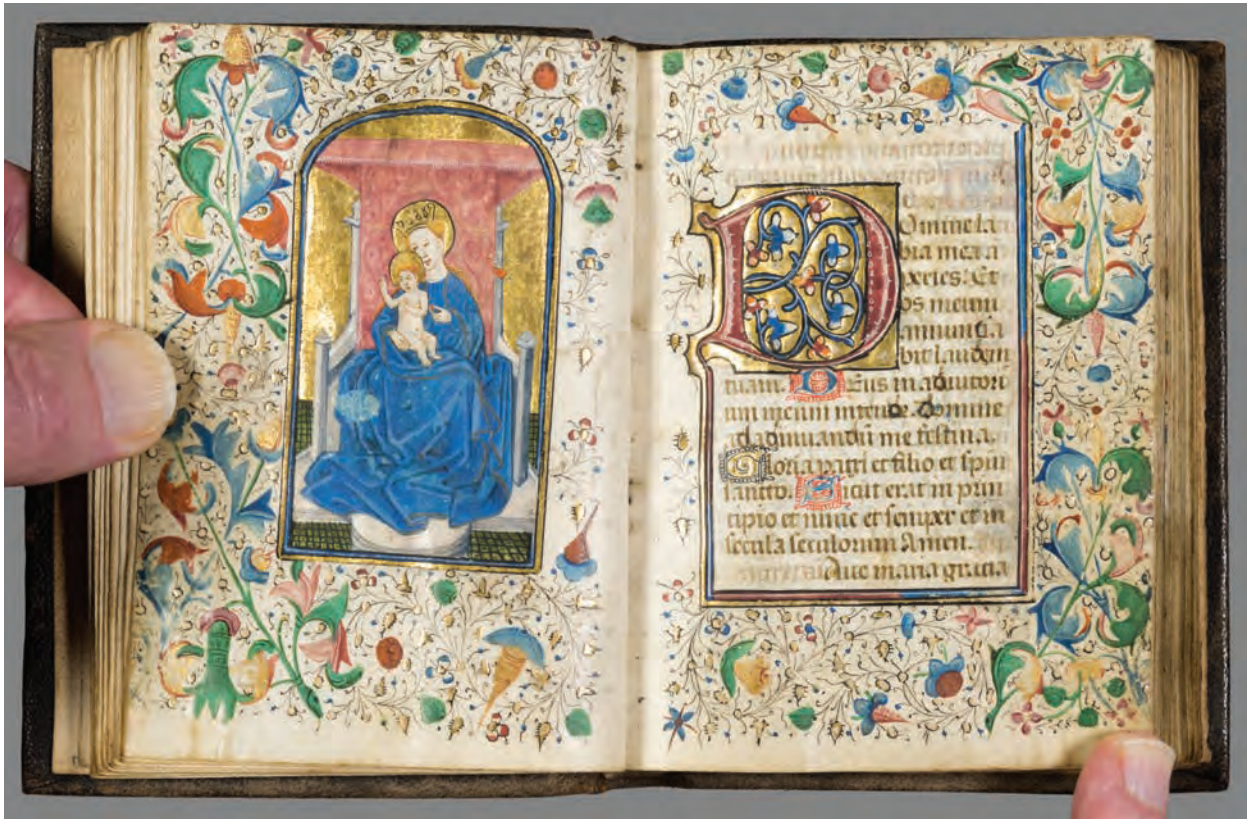 Domine la
bia mea a
peries. Et
os meum
annuncia
bit laudem
tuam. Deus in adiutori
um meum intende. Domine
ad adiuuandū me festina.
Gloria patri et filio et spiri
sancto. Sicut erat in prin
cipio et nunc et semper et in
secula seculorum Amen.
Aue maria gracia